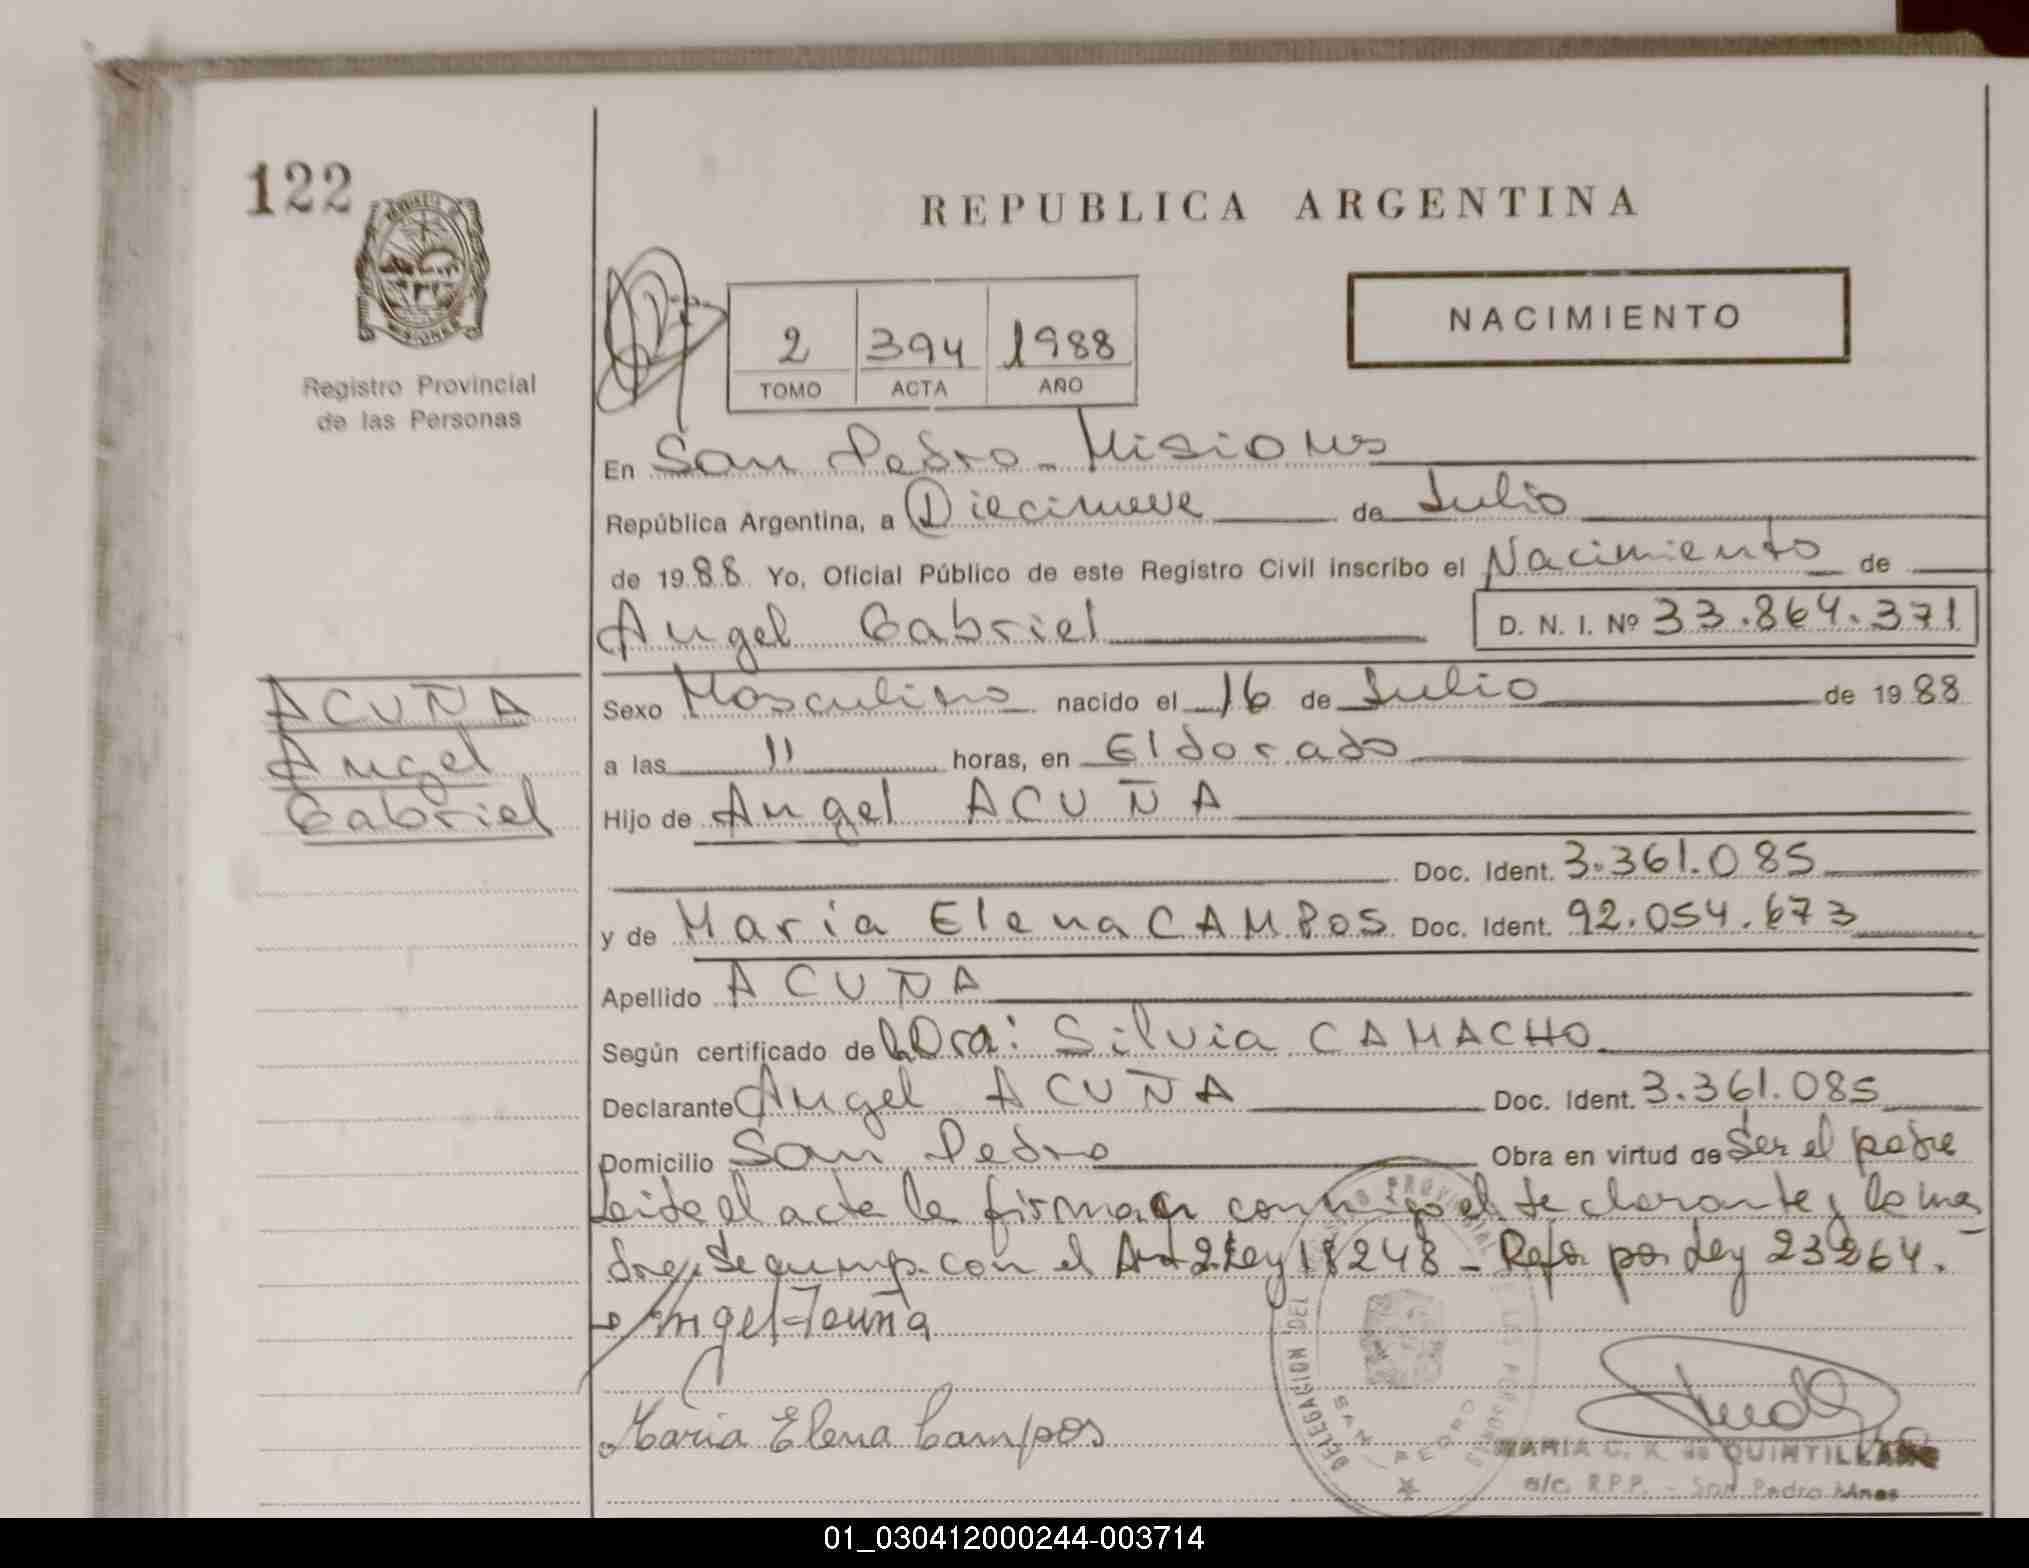 122
REPUBLICA ARGENTINA
NACIMIENTO
2 394 1988
TOMO ACTA AÑO
Registro Provincial
de las Personas
En San Pedro - Misiones
República Argentina, a Diecinueve de Julio
de 1988 Yo, Oficial Público de este Registro Civil inscribo el Nacimiento de
Angel Gabriel D. N. I. Nº 33.864.371
ACUÑA
Angel
Gabriel
Sexo Masculino nacido el 16 de Julio de 1988
a las 11 horas, en Eldorado
Hijo de Angel ACUÑA
Doc. Ident. 3.361.085
y de Maria Elena CAMPOS Doc. Ident. 92.054.673
Apellido ACUÑA
Según certificado de la Dra: Silvia CAMACHO
Declarante Angel ACUÑA Doc. Ident. 3.361.085
Domicilio San Pedro Obra en virtud de Ser el padre
Leida el acta la firman conmigo el declarante y la ma
dre, Se cump. con el Art 2 Ley 18248 - Refor por Ley 23264.
Angel Acuña
Maria Elena Campos
DELEGACION DEL REGISTRO PROVINCIAL DE LAS PERSONAS
SAN PEDRO
MARIA C. K. de QUINTILLAN
a/c. R.P.P. - San Pedro Mnes
01_030412000244-003714